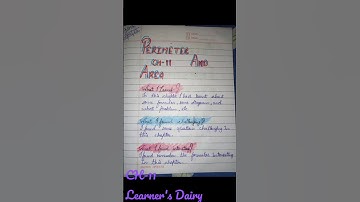 PERIMETER
CH-11 AND
AREA
What I learnt?
In this chapter I had learnt about
some formulas, some diagrams, and
about problem, etc.
What I found challenging?
I found some question challenging in
this chapter.
What I found interesting?
I found remember the formulas interesting
in this chapter.
CH-11
Learner's Dairy